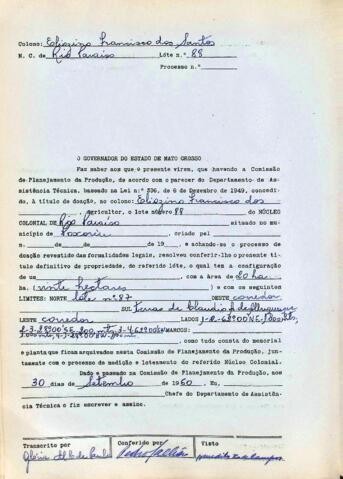 Colono: Eliozino Francisco dos Santos
N. C. de Rio Paraiso Lóte n.º 88
Processo n.º
O GOVERNADOR DO ESTADO DE MATO GROSSO
Faz saber aos que o presente virem, que havendo a Comissão
de Planejamento da Produção, de acordo com o parecer do Departamento de As-
sistência Técnica, baseado na Lei n.º 336, de 6 de Dezembro de 1949, concedi-
do, A título de doação, ao colono: Eliozino Francisco dos
, agricultor, o lote número 88 do NÚCLEO
COLONIAL DE Rio Paraiso situado no mu-
nicípio de Poxoréu, criado pel
n. de de de 19 , e achando-se o processo de
doação revestido das formalidades legais, resolveu conferir-lhe o presente
título definitivo de propriedade, do referido lote, o qual tem a configuração
de um com a área de 20 ha.
ha. (vinte hectares) e com os seguintes
LIMITES: NORTE lote nº 87 OESTE corredor
SUL Terras de Claudio de Albuquerque
LESTE corredor LADOS
MARCOS:
, como tudo consta do memorial
e planta que ficam arquivados nesta Comissão de Planejamento da Produção, jun-
tamente com o processo de medição e loteamento do referido Núcleo Colonial.
Dado e passado na Comissão de Planejamento da Produção, aos
30 dias de Setembro de 1960. Eu,
Chefe do Departamento de Assistên-
cia Técnica o fiz escrever e assino.
Transcrito por Conferido por Visto
Glória de Paula Pedro